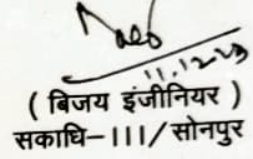 11.12.23
( बिजय इंजीनियर )
सकाधि-III/सोनपुर